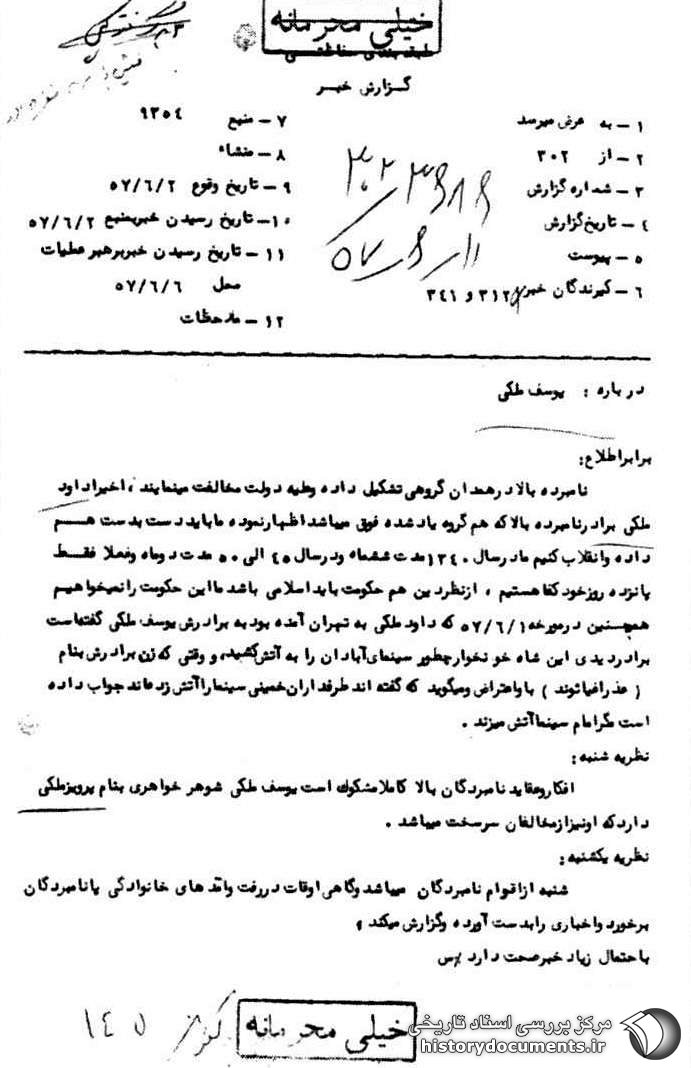 خیلی محرمانه
طبقه بندی حفاظتی
گزارش خبر
۱ - به عرض میرسد
۲ - از ۳۰۲
۳ - شماره گزارش
۴ - تاریخ گزارش
۵ - پیوست
۶ - گیرندگان خبر ۳۱۲ و ۳۴۱
۷ - منبع ۹۳۵۴
۸ - منشاء
۹ - تاریخ وقوع ۵۷/۶/۲
۱۰ - تاریخ رسیدن خبر بمنبع ۵۷/۶/۲
۱۱ - تاریخ رسیدن خبر برهبر عملیات
محل ۵۷/۶/۶
۱۲ - ملاحظات
درباره : یوسف ملکی
برابر اطلاع:
نامبرده بالا در همدان گروهی تشکیل داده و علیه دولت مخالفت مینمایند ، اخیرا داود
ملکی برادر نامبرده بالا که هم گروه یاد شده فوق میباشد اظهار نموده ما باید دست بدست هم
داده و انقلاب کنیم ما در سال ۱۳۴۰ مدت ششماه و در سال ۴۵ الی ۵۰ مدت دو ماه و فعلا فقط
پانزده روز خود کفا هستیم ، از نظر دین هم حکومت باید اسلامی باشد ما این حکومت را نمیخواهیم
همچنین در مورخه ۵۷/۶/۱ که داود ملکی به تهران آمده بود به برادرش یوسف ملکی گفته است
برادر دیدی این شاه خونخوار چطور سینمای آبادان را به آتش کشید، و وقتی که زن برادرش بنام
( عذرا غیاثوند ) با و اعتراض و میگوید که گفته اند طرفداران خمینی سینما را آتش زده اند جواب داده
است مگر امام سینما آتش میزند .
نظریه شنبه:
افکار و عقاید نامبردگان بالا کاملا مشکوک است یوسف ملکی شوهر خواهری بنام پرویز ملکی
دارد که او نیز از مخالفان سرسخت میباشد .
نظریه یکشنبه:
شنبه از اقوام نامبردگان میباشد و گاهی اوقات در رفت و آمد های خانوادگی با نامبردگان
برخورد و اخباری را بدست آورده و گزارش میکند ،
با حتمال زیاد خبر صحت دارد
خیلی محرمانه
مرکز بررسی اسناد تاریخی
historydocuments.ir